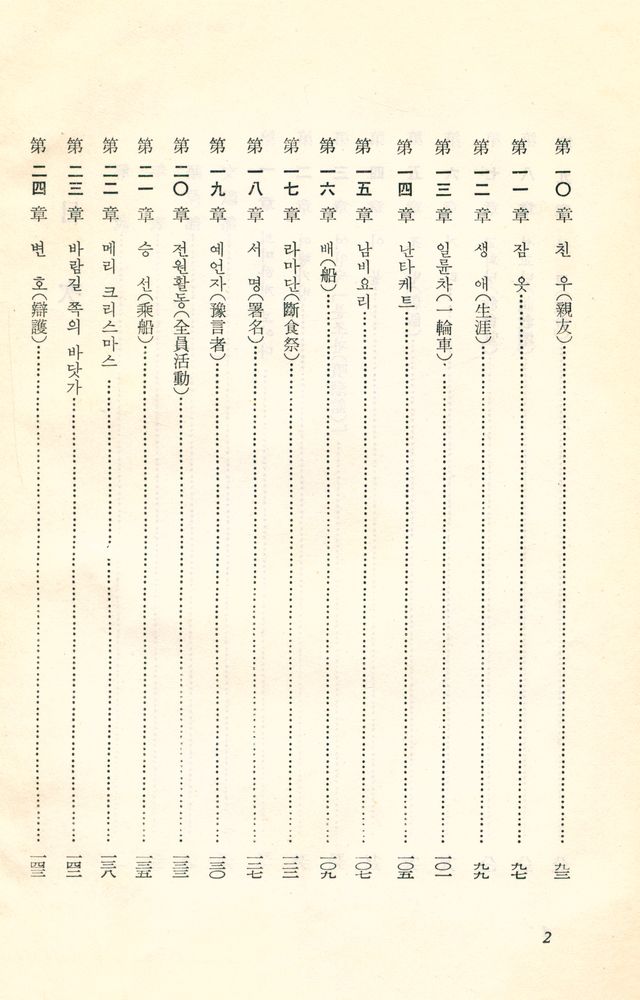 第一〇章 친 우(親友)……九三
第一一章 잠 옷……九七
第一二章 생 애(生涯)……九九
第一三章 일륜차(一輪車)……一〇一
第一四章 난타케트……一〇五
第一五章 남비요리……一〇七
第一六章 배(船)……一〇九
第一七章 라마단(斷食祭)……一二三
第一八章 서 명(署名)……一二七
第一九章 예언자(豫言者)……一三〇
第二〇章 전원활동(全員活動)……一三三
第二一章 승 선(乘船)……一三五
第二二章 메리 크리스마스……一三八
第二三章 바람길 쪽의 바닷가……一四二
第二四章 변 호(辯護)……一四三
2